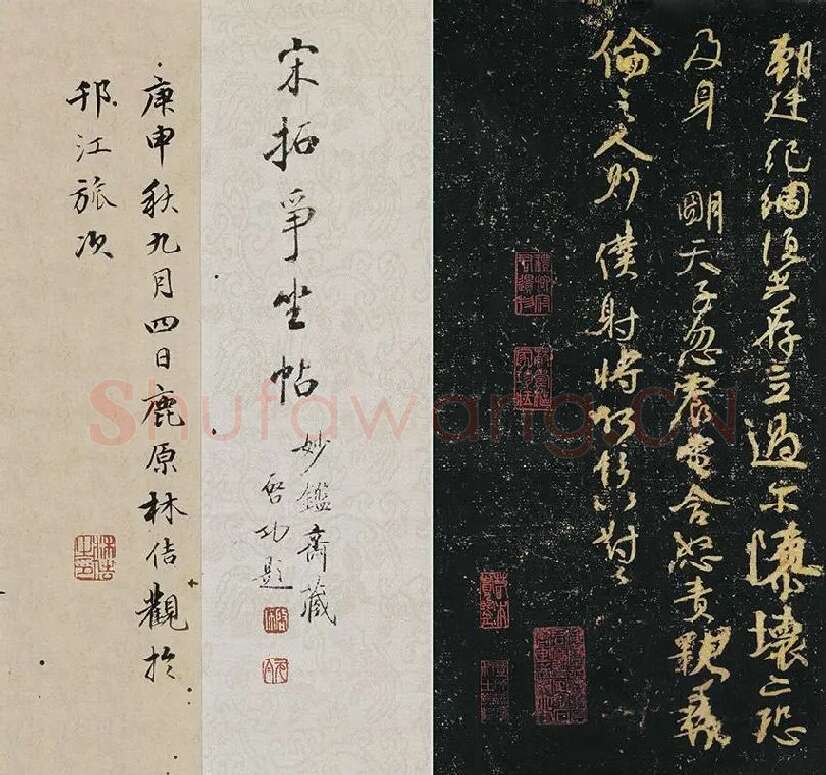 朝廷紀綱須共存立過尔隳壞亦恐
及身 明天子忽震電含怒責斁彝
倫之人則僕射將何辞以對
宋拓爭坐帖
妙鑑齋藏
啓功題
庚申秋九月四日鹿原林佶觀於
邗江旅次
Shufawang.CN